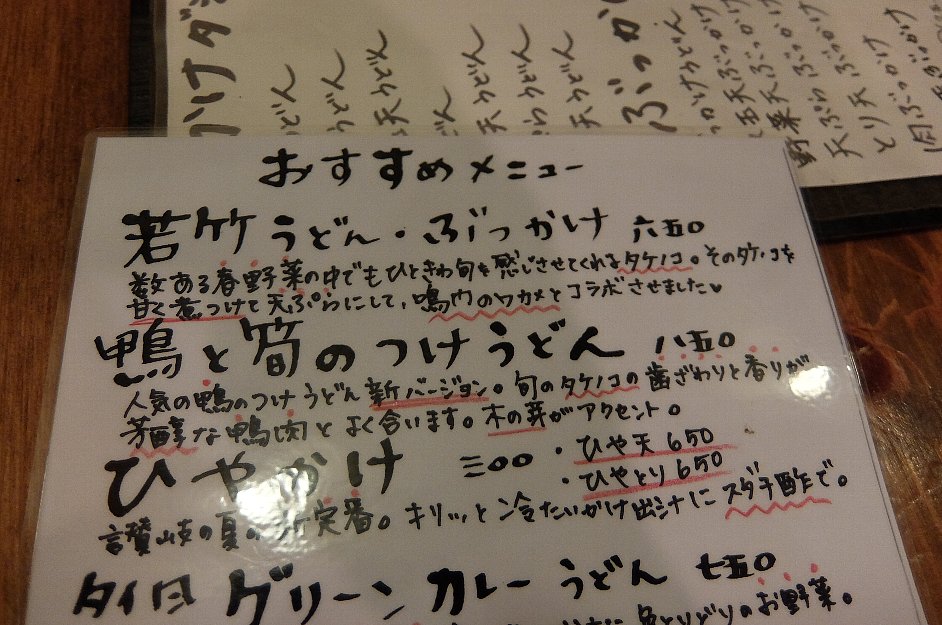 かけダ
うどん
うどん
天うどん
どん
天うどん
うどん
天うどん
ぶっか
野菜天ぶっかけ
天ぷらぶっかけ
とり天ぶっかけ
肉ぶっかけ
おすすめメニュー
若竹うどん・ぶっかけ 六五〇
数ある春野菜の中でもひときわ旬を感じさせてくれるタケノコ。そのタケノコを
甘く煮つけて天ぷらにして、鳴門のワカメとコラボさせました♥
鴨と筍のつけうどん 八五〇
人気の鴨のつけうどん新バージョン。旬のタケノコの歯ざわりと香りが
芳醇な鴨肉とよく合います。木の芽がアクセント。
ひやかけ 三〇〇 ・ひや天650
・ひやとり650
讃岐の夏の定番。キリッと冷たいかけ出汁にスダチ酢で。
タイ風グリーンカレーうどん 七五〇
色とりどりのお野菜。